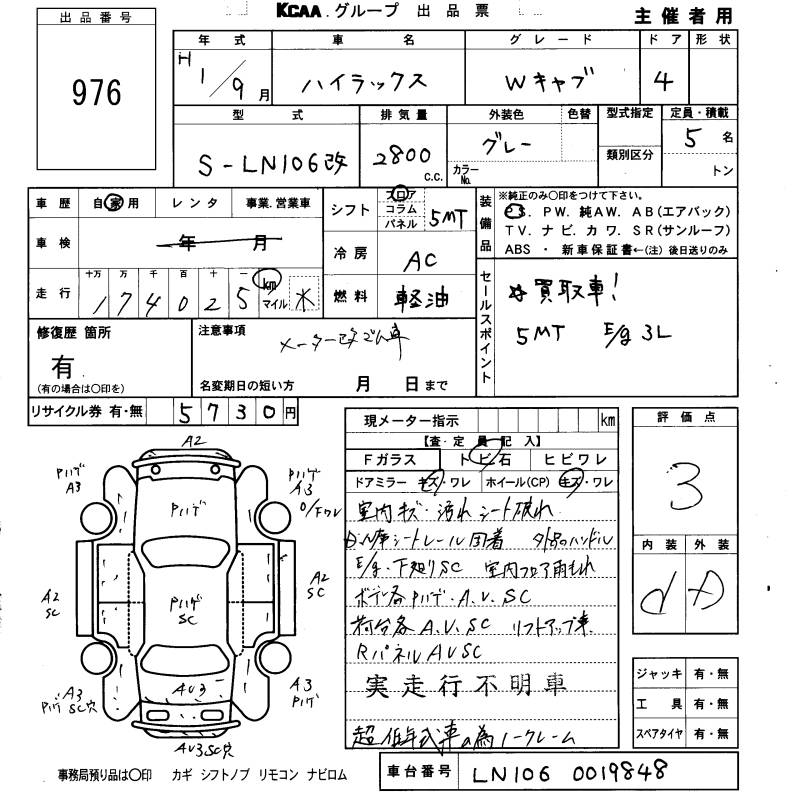 KCAA.グループ 出品票
主催者用
出品番号
976
年式 車名 グレード ドア 形状
H 1/9月 ハイラックス Wキャブ 4
型式 排気量 外装色 色替 型式指定 定員・積載
S-LN106改 2800 c.c. グレー カラーNo. 類別区分 5名
トン
車歴 自家用 レンタ 事業.営業車
車検 年 月
走行 十万 万 千 百 十 一
174025 km マイル
シフト フロア コラム パネル 5MT
冷房 AC
燃料 軽油
装備品
※純正のみ〇印をつけて下さい。
PS. PW. 純AW. AB(エアバック)
TV. ナビ. カワ. SR(サンルーフ)
ABS ・ 新車保証書←(注) 後日送りのみ
セールスポイント
買取車!
5MT E/g 3L
修復歴 箇所
有
(有の場合は〇印を)
注意事項
メーター改ざん車
名変期日の短い方 月 日まで
リサイクル券 有・無 5730円
現メーター指示 km
【査・定員記入】
Fガラス トビ石 ヒビワレ
ドアミラー キズ・ワレ ホイール(CP) キズ・ワレ
室内キズ・汚れ シート破れ
シートレール固着 外品ハンドル
E/g・下廻りSC 室内フロア雨もれ
ボデー各Pハゲ・A.U.SC
荷台各A.U.SC リフトアップ車
RパネルAUSC
実走行不明車
超低年式車の為ノークレーム
評価点
3
内装 外装
d
ジャッキ 有・無
工具 有・無
スペアタイヤ 有・無
A2
Pハゲ A3
Pハゲ
Pハゲ A3
A2 SC
Pハゲ SC
A2 SC
A3 Pハゲ SC穴
AU3
A3 Pハゲ
AU3SC穴
事務局預り品は〇印 カギ シフトノブ リモコン ナビロム
車台番号 LN106 0019848